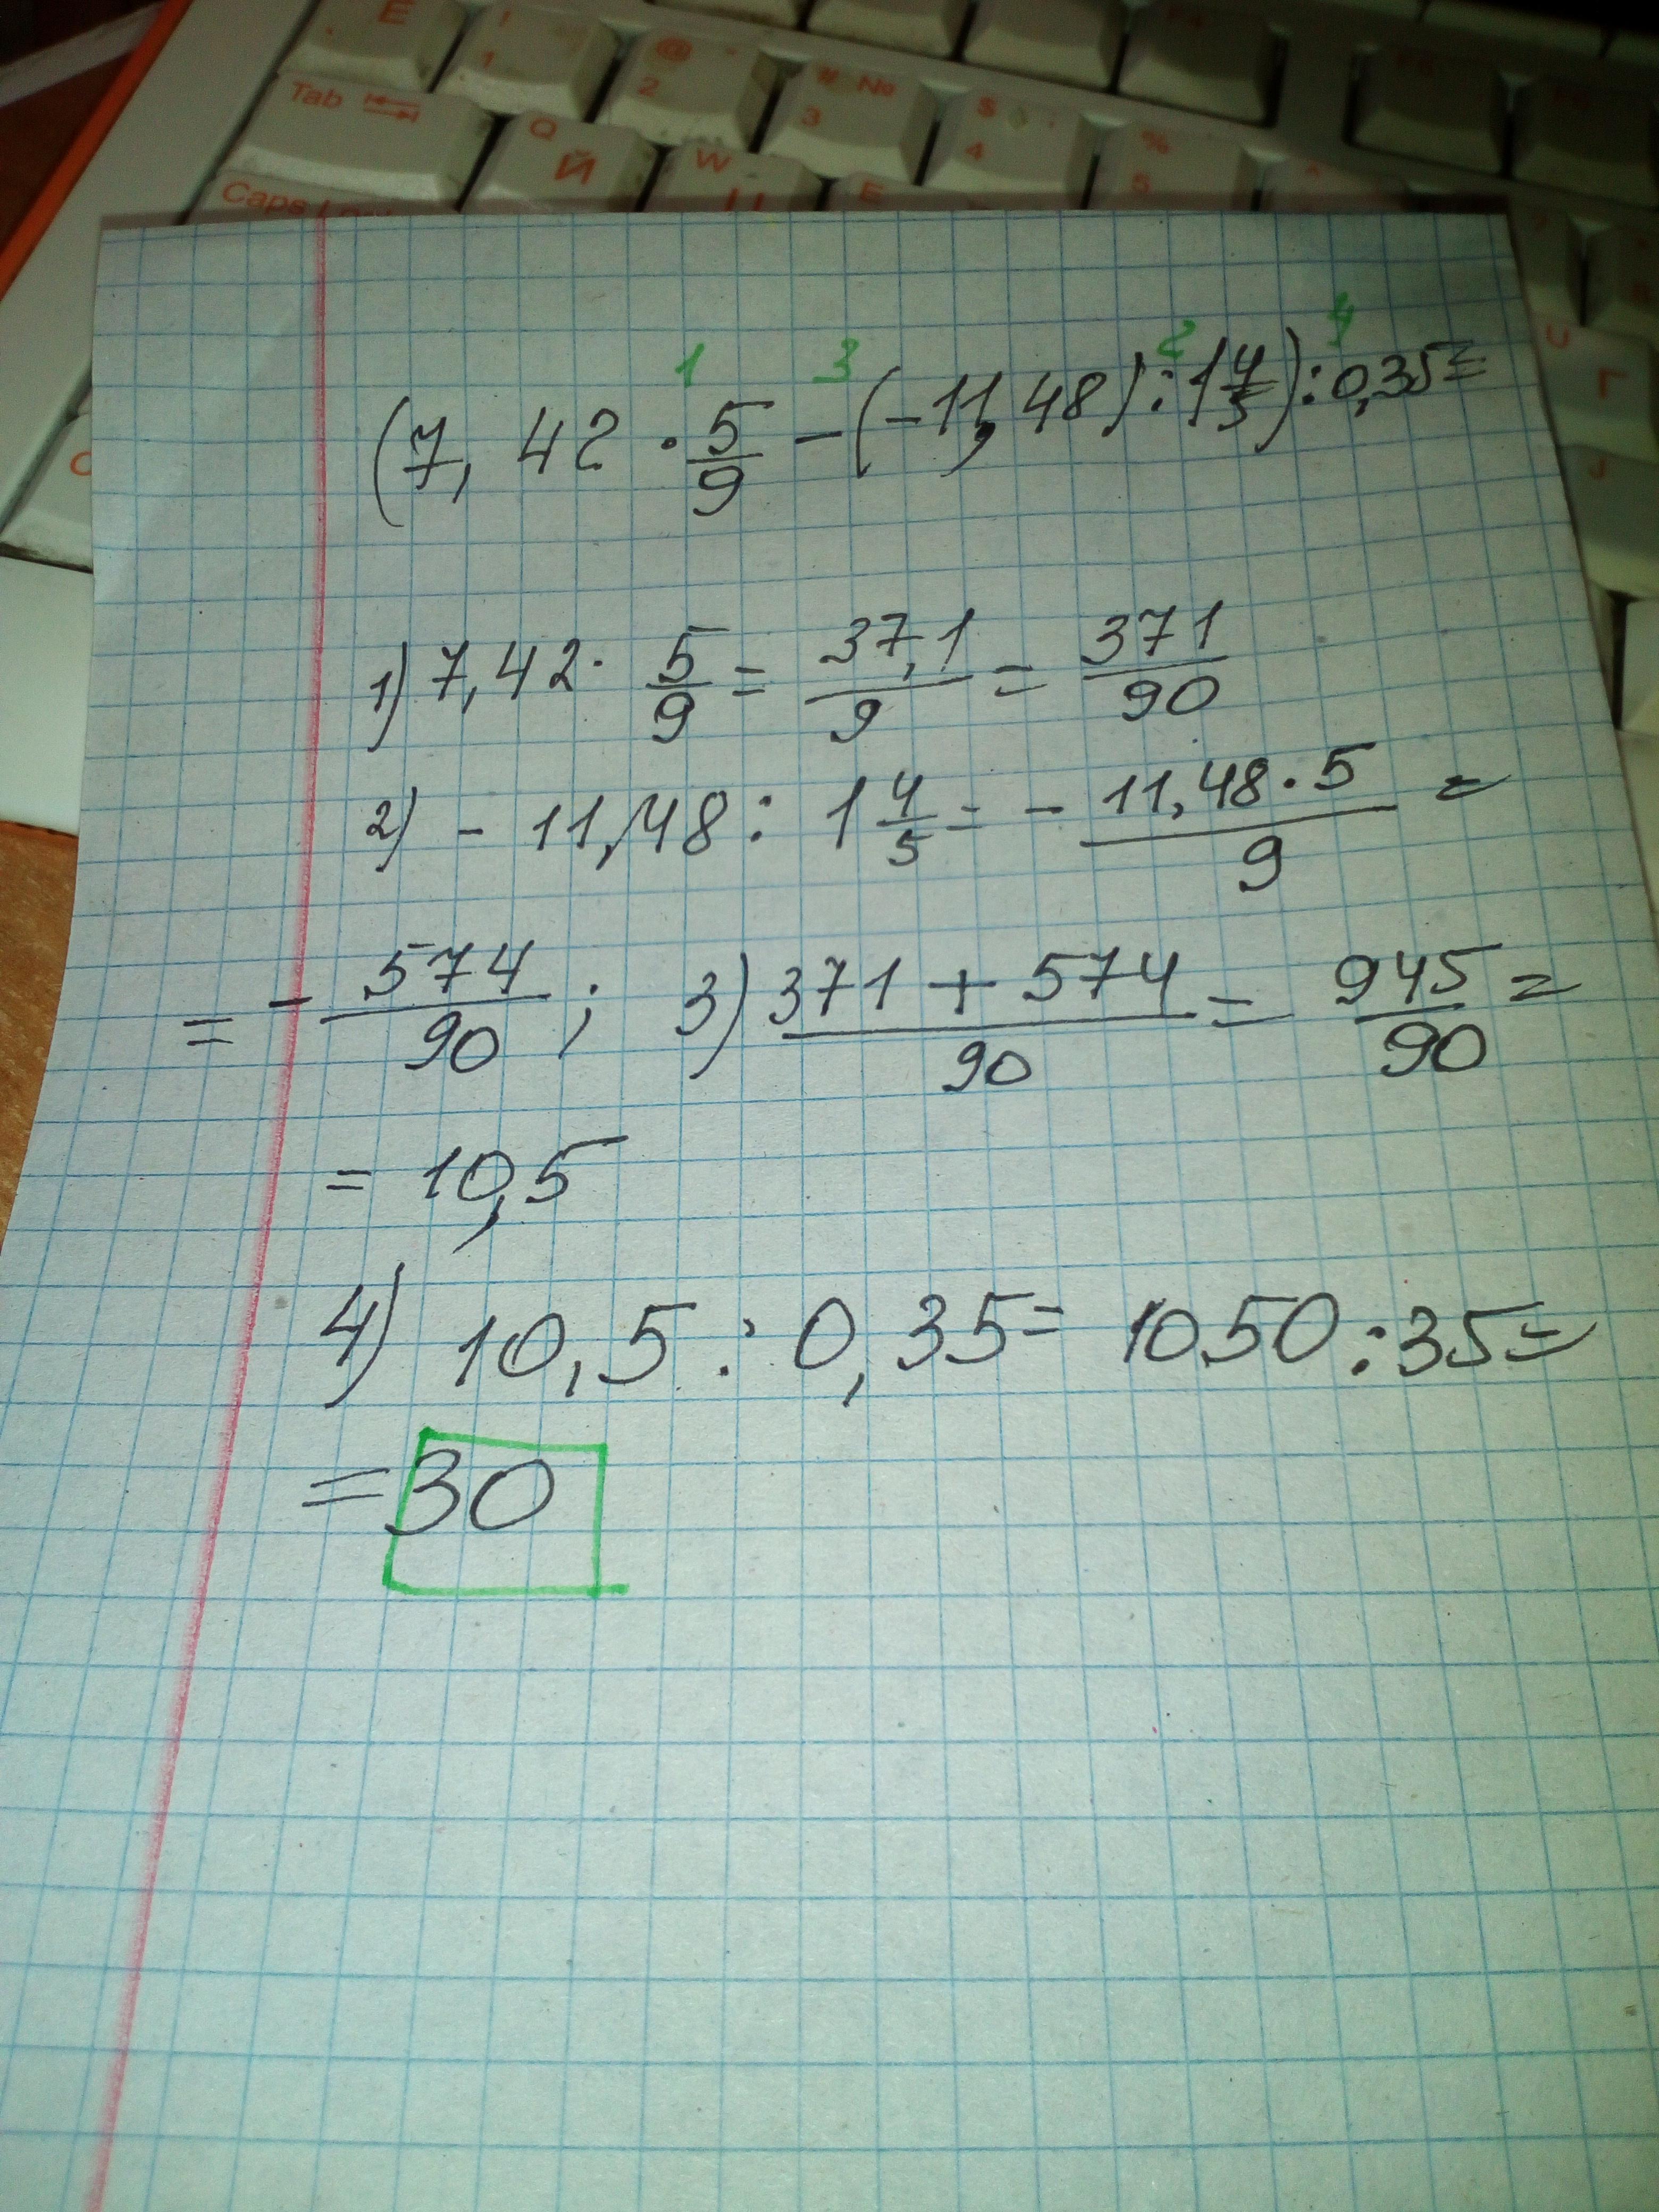 E
! 1
@ 2
# № 3
$ 4
% 5
Tab
Q Й
W
E
Caps
U
Г
J
1 3 2 4
(7,42 · 5/9 - (-11,48) : 1 4/5) : 0,35 =
1) 7,42 · 5/9 = 37,1/9 = 371/90
2) - 11,48 : 1 4/5 = - 11,48·5/9 =
= - 574/90 ; 3) 371 + 574/90 = 945/90 =
= 10,5
4) 10,5 : 0,35 = 1050 : 35 =
= 30